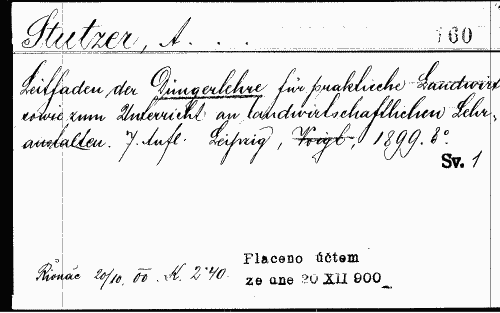 Stutzer, A. . . . 160
Leitfaden der Düngerlehre für praktische Landwirt
sowie zum Unterricht an landwirtschaftlichen Lehr-
anstalten. 7. Aufl. Leipzig, Voigt, 1899. 8°.
Sv. 1
Řivnáč 20/10. 00. K. 2·40.
Placeno účtem
ze dne 20 XII 900